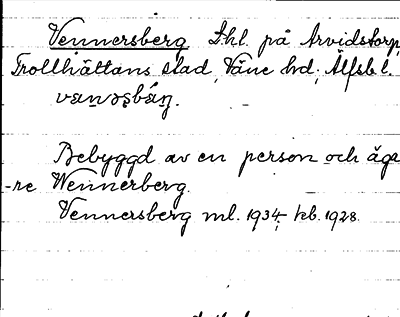 Vennersberg Lhl. på Arvidstorp,
Trollhättans stad, Väne hd; Älfsb l.
Bebyggd av en person och äga
-re Wennerberg.
Vennersberg ml. 1934; kb. 1928.